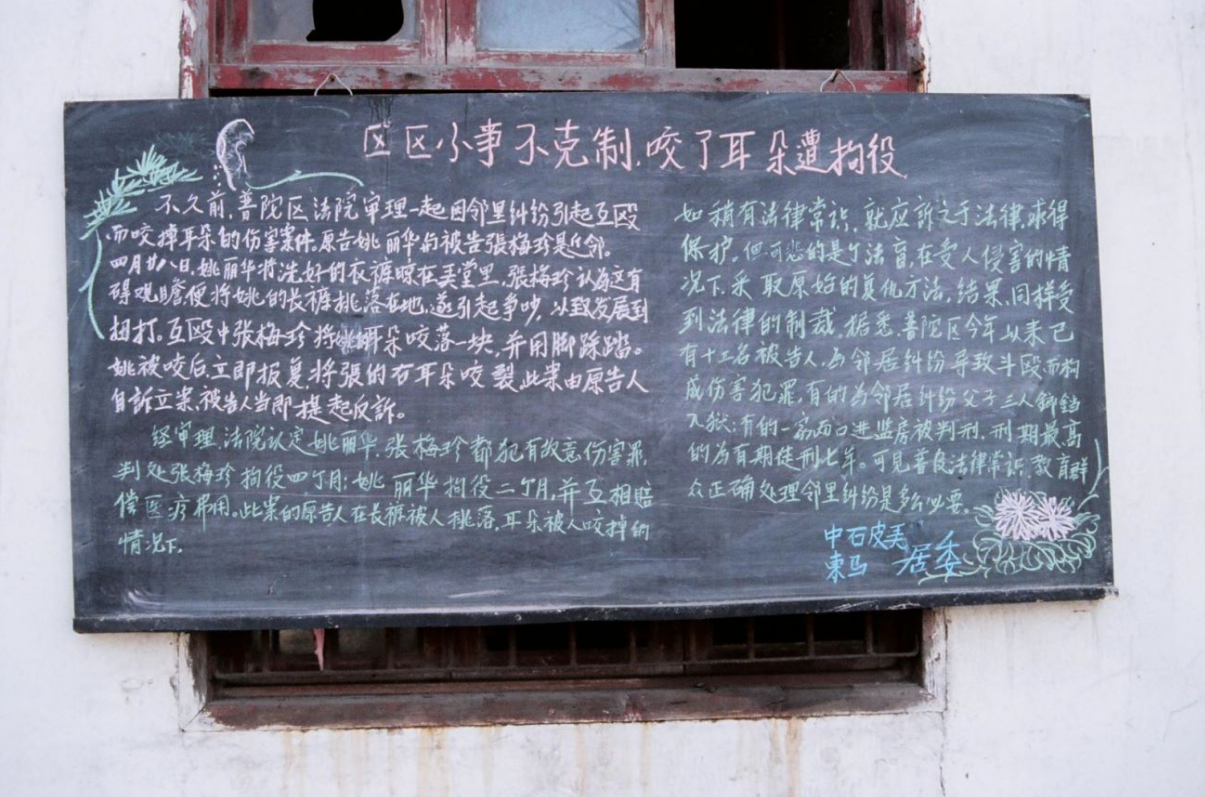 区区小事不克制,咬了耳朵遭拘役
不久前,普陀区法院审理一起因邻里纠纷引起互殴
而咬掉耳朵的伤害案件。原告姚丽华与被告張梅珍是近邻。
四月廿八日,姚丽华将洗好的衣裤晾在美堂里,張梅珍认为这有
碍观瞻便将姚的長裤挑落在地,遂引起争吵,以致发展到
扭打。互殴中张梅珍将姚耳朵咬落一块,并用脚踩踏。
姚被咬后,立即报复,将張的右耳朵咬裂,此案由原告人
自訴立案,被告人当即提起反訴。
经审理,法院认定姚丽华、张梅珍都犯有故意伤害罪,
判处张梅珍拘役四个月;姚丽华拘役二个月,并互相賠
偿医疗费用。此案的原告人在長裤被人挑落,耳朵被人咬掉的
情况下,
如稍有法律常识,就应訴之于法律,求得
保护,但可悲的是个法盲,在受人侵害的情
况下,采取原始的复仇方法,结果,同样受
到法律的制裁。据悉,普陀区今年以来已
有十二名被告人,为邻居纠纷导致斗殴而构
成伤害犯罪,有的为邻居纠纷父子三人锒铛
入狱;有的一家两口进监房被判刑,刑期最高
的为有期徒刑七年。可见普及法律常识,教育群
众正确处理邻里纠纷是多么必要。
中石皮美
東马 居委